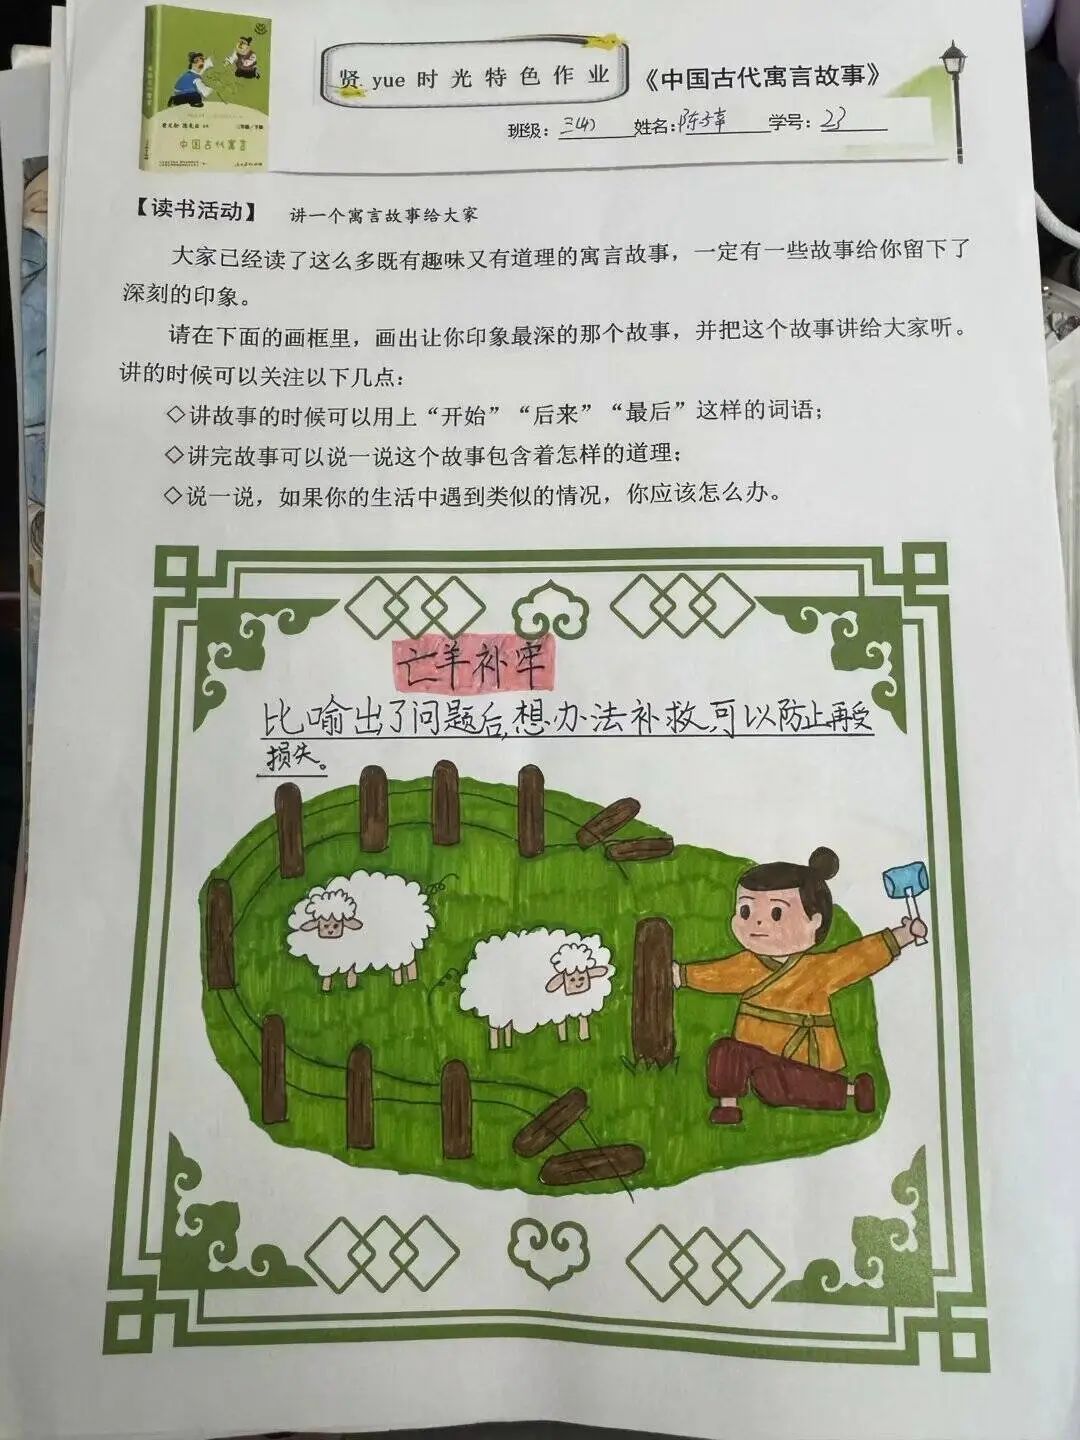 贤yue时光特色作业
《中国古代寓言故事》
班级：三(4) 姓名：陈 学号：23
中国古代寓言
【读书活动】 讲一个寓言故事给大家
大家已经读了这么多既有趣味又有道理的寓言故事，一定有一些故事给你留下了
深刻的印象。
请在下面的画框里，画出让你印象最深的那个故事，并把这个故事讲给大家听。
讲的时候可以关注以下几点：
◇讲故事的时候可以用上“开始”“后来”“最后”这样的词语；
◇讲完故事可以说一说这个故事包含着怎样的道理；
◇说一说，如果你的生活中遇到类似的情况，你应该怎么办。
亡羊补牢
比喻出了问题后，想办法补救，可以防止再受
损失。